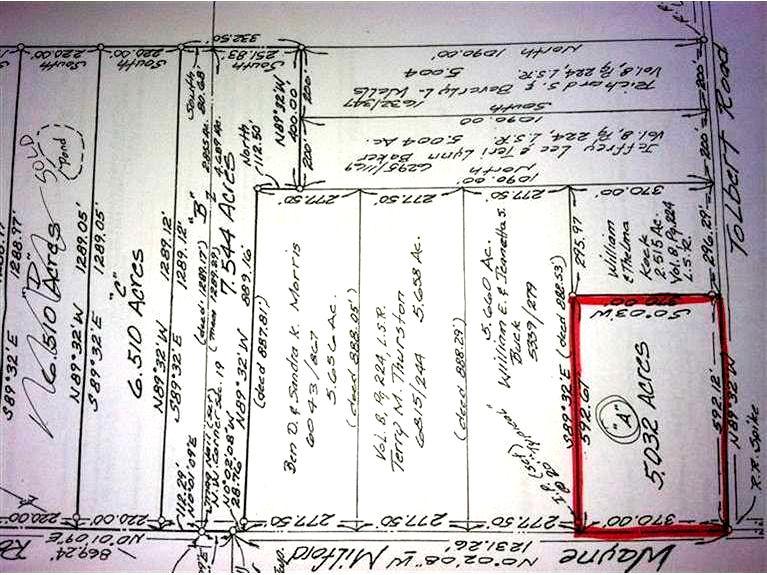 332.50'
220.00'
220.00'
South
South
251.83'
South
North 1090.00'
5.004
Vol. 8, Pg 224, L.S.R.
Richard S. & Beverly L. Wells
1632/347
South
1090.00
Vol. 8, Pg 224, L.S.R. 5.004 Ac.
Jeffrey Lee & Teri Lynn Baker
6295/1169
North
1090.00'
200'
200'
200'
200'
N89°32'W
400.00'
North
112.50'
South
20.68'
Tolbert Road
296.29'
277.50'
277.50'
277.50'
370.00'
SOLD
Pond
"D"
6.510 Acres
1288.97'
S89°32'E
1289.05'
N89°32'W
1289.05'
S89°32'E
"C"
6.510 Acres
1289.12'
N89°32'W
1289.12'
S89°32'E
"B"
7.544 Acres
2.855 Ac.
4.689 Ac.
(deed 1289.17')
(Meas 1289.89)
889.16'
N89°32'W
(deed 887.81)
Ben D. & Sandra K. Morris
6043/867
5.656 Ac.
(deed 888.05')
Vol. 8, Pg 224, L.S.R.
Terry M. Thurston
6815/244 5.658 Ac.
(deed 888.29)
5.660 Ac.
William E. & Jannetta S.
Buck
5339/279
295.97
(deed 888.53)
S89°32'E
592.61'
William
& Thelma
Keck
2.515 Ac.
Vol. 8, Pg. 224
L.S.R.
370.00
S0°03'W
"A"
5.032 Acres
592.12'
N89°32'W
R.R. Spike
370.00'
277.50'
277.50'
277.50'
112.29'
N0°01'09"E
N.W. Corner Sec. 19
N0°02'08"W
28.76'
220.00'
220.00'
869.24'
N0°01'09"E
1231.26'
N0°02'08"W
Wayne Milford